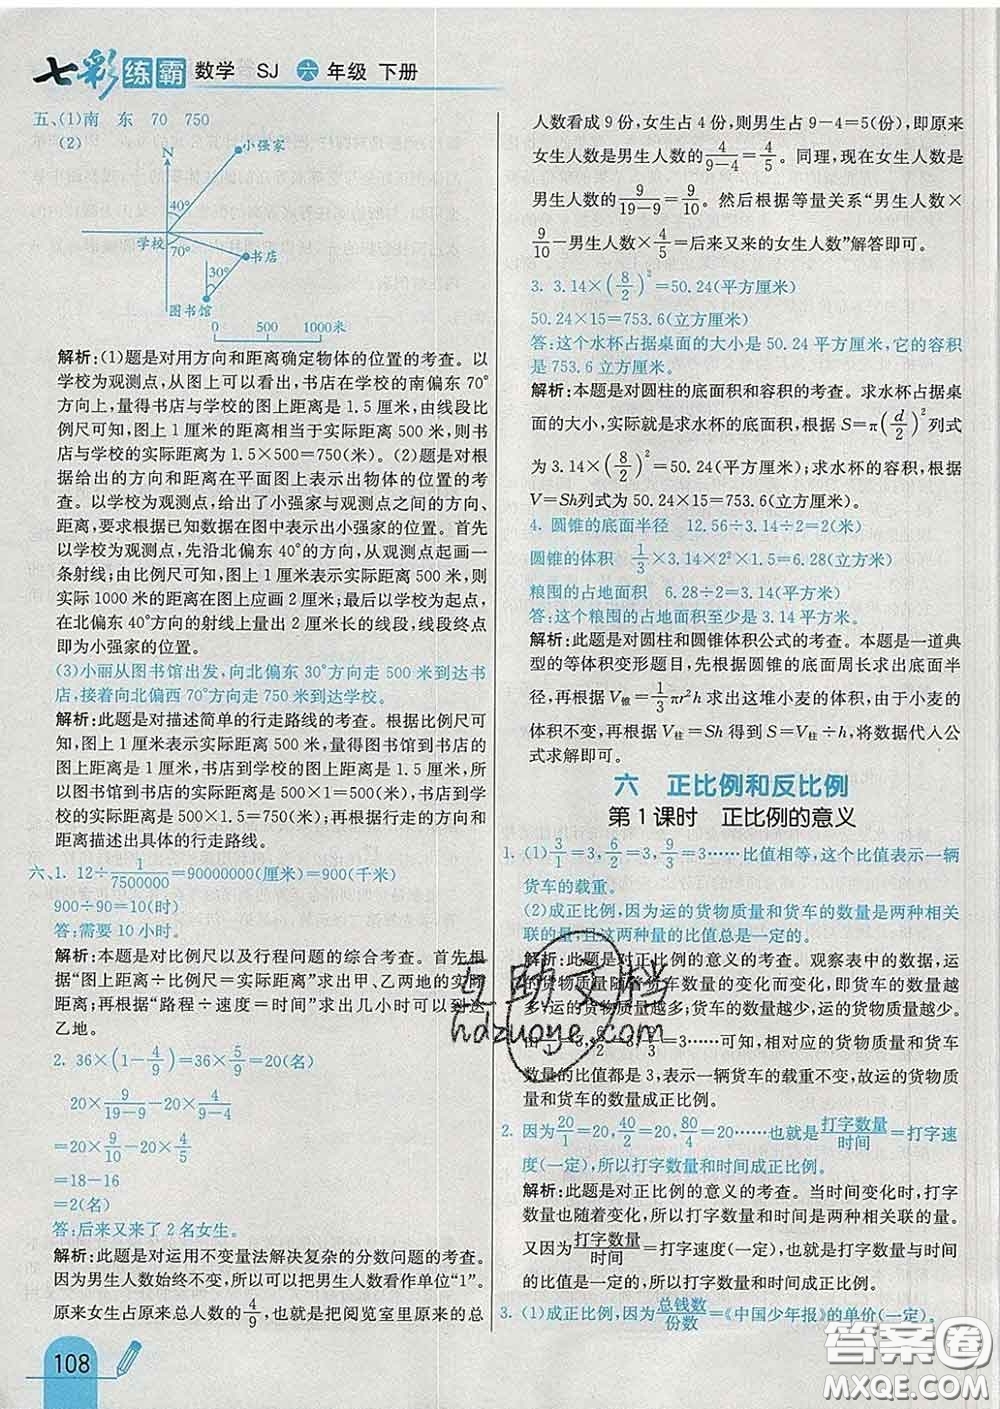 七彩练霸 数学 SJ 六年级 下册
五、(1)南 东 70 750
(2)
N
小强家
40°
学校
70°
书店
30°
图书馆
0 500 1000米
解析:(1)题是对用方向和距离确定物体的位置的考查。以
学校为观测点,从图上可以看出,书店在学校的南偏东70°
方向上,量得书店与学校的图上距离是1.5厘米,由线段比
例尺可知,图上1厘米的距离相当于实际距离500米,则书
店与学校的实际距离为1.5×500=750(米)。(2)题是对根
据给出的方向和距离在平面图上表示出物体的位置的考
查。以学校为观测点,给出了小强家与观测点之间的方向、
距离,要求根据已知数据在图中表示出小强家的位置。首先
以学校为观测点,先沿北偏东40°的方向,从观测点起画一
条射线;由比例尺可知,图上1厘米表示实际距离500米,则
实际1000米的距离在图上应画2厘米;最后以学校为起点,
在北偏东40°方向的射线上量出2厘米长的线段,线段终点
即为小强家的位置。
(3)小丽从图书馆出发,向北偏东30°方向走500米到达书
店,接着向北偏西70°方向走750米到达学校。
解析:此题是对描述简单的行走路线的考查。根据比例尺可
知,图上1厘米表示实际距离500米,量得图书馆到书店的
图上距离是1厘米,书店到学校的图上距离是1.5厘米,所
以图书馆到书店的实际距离是500×1=500(米),书店到学
校的实际距离是500×1.5=750(米);再根据行走的方向和
距离描述出具体的行走路线。
六、1. 12÷1/7500000=90000000(厘米)=900(千米)
900÷90=10(时)
答:需要10小时。
解析:本题是对比例尺以及行程问题的综合考查。首先根
据“图上距离÷比例尺=实际距离”求出甲、乙两地的实际
距离;再根据“路程÷速度=时间”求出几小时可以到达
乙地。
2. 36×(1-4/9)=36×5/9=20(名)
20×9/(19-9)-20×4/(9-4)
=20×9/10-20×4/5
=18-16
=2(名)
答:后来又来了2名女生。
解析:此题是对运用不变量法解决复杂的分数问题的考查。
因为男生人数始终不变,所以可以把男生人数看作单位“1”。
原来女生占原来总人数的4/9,也就是把阅览室里原来的总
人数看成9份,女生占4份,则男生占9-4=5(份),即原来
女生人数是男生人数的4/(9-4)=4/5。同理,现在女生人数是
男生人数的9/(19-9)=9/10。然后根据等量关系“男生人数×
9/10-男生人数×4/5=后来又来的女生人数”解答即可。
3. 3.14×(8/2)²=50.24(平方厘米)
50.24×15=753.6(立方厘米)
答:这个水杯占据桌面的大小是50.24平方厘米,它的容积
是753.6立方厘米。
解析:本题是对圆柱的底面积和容积的考查。求水杯占据桌
面的大小,实际就是求水杯的底面积,根据S=π(d/2)²列式
为3.14×(8/2)²=50.24(平方厘米);求水杯的容积,根据
V=Sh列式为50.24×15=753.6(立方厘米)。
4. 圆锥的底面半径 12.56÷3.14÷2=2(米)
圆锥的体积 1/3×3.14×2²×1.5=6.28(立方米)
粮囤的占地面积 6.28÷2=3.14(平方米)
答:这个粮囤的占地面积至少是3.14平方米。
解析:此题是对圆柱和圆锥体积公式的考查。本题是一道典
型的等体积变形题目,首先根据圆锥的底面周长求出底面半
径,再根据V锥=1/3πr²h求出这堆小麦的体积,由于小麦的
体积不变,再根据V柱=Sh得到S=V柱÷h,将数据代人公
式求解即可。
六 正比例和反比例
第1课时 正比例的意义
1. (1)3/1=3,6/2=3,9/3=3……比值相等,这个比值表示一辆
货车的载重。
(2)成正比例,因为运的货物质量和货车的数量是两种相关
联的量,且这两种量的比值总是一定的。
解析:此题是对正比例的意义的考查。观察表中的数据,运
的货物质量随着货车数量的变化而变化,即货车的数量越
多,运的货物质量越多;货车的数量越少,运的货物质量越少。
由3/1=3,6/2=3,9/3=3……可知,相对应的货物质量与货车
数量的比值都是3,表示一辆货车的载重不变,故运的货物质
量和货车的数量成正比例。
2. 因为20/1=20,40/2=20,80/4=20……也就是打字数量/时间=打字速
度(一定),所以打字数量和时间成正比例。
解析:此题是对正比例的意义的考查。当时间变化时,打字
数量也随着变化,所以打字数量和时间是两种相关联的量。
又因为打字数量/时间=打字速度(一定),所以打字数量与时间
的比值一定,所以打字数量和时间成正比例。
3. (1)成正比例,因为总钱数/份数=《中国少年报》的单价(一定)。
108
互助文档
hdzuoye.com
答案圈
MXQE.COM